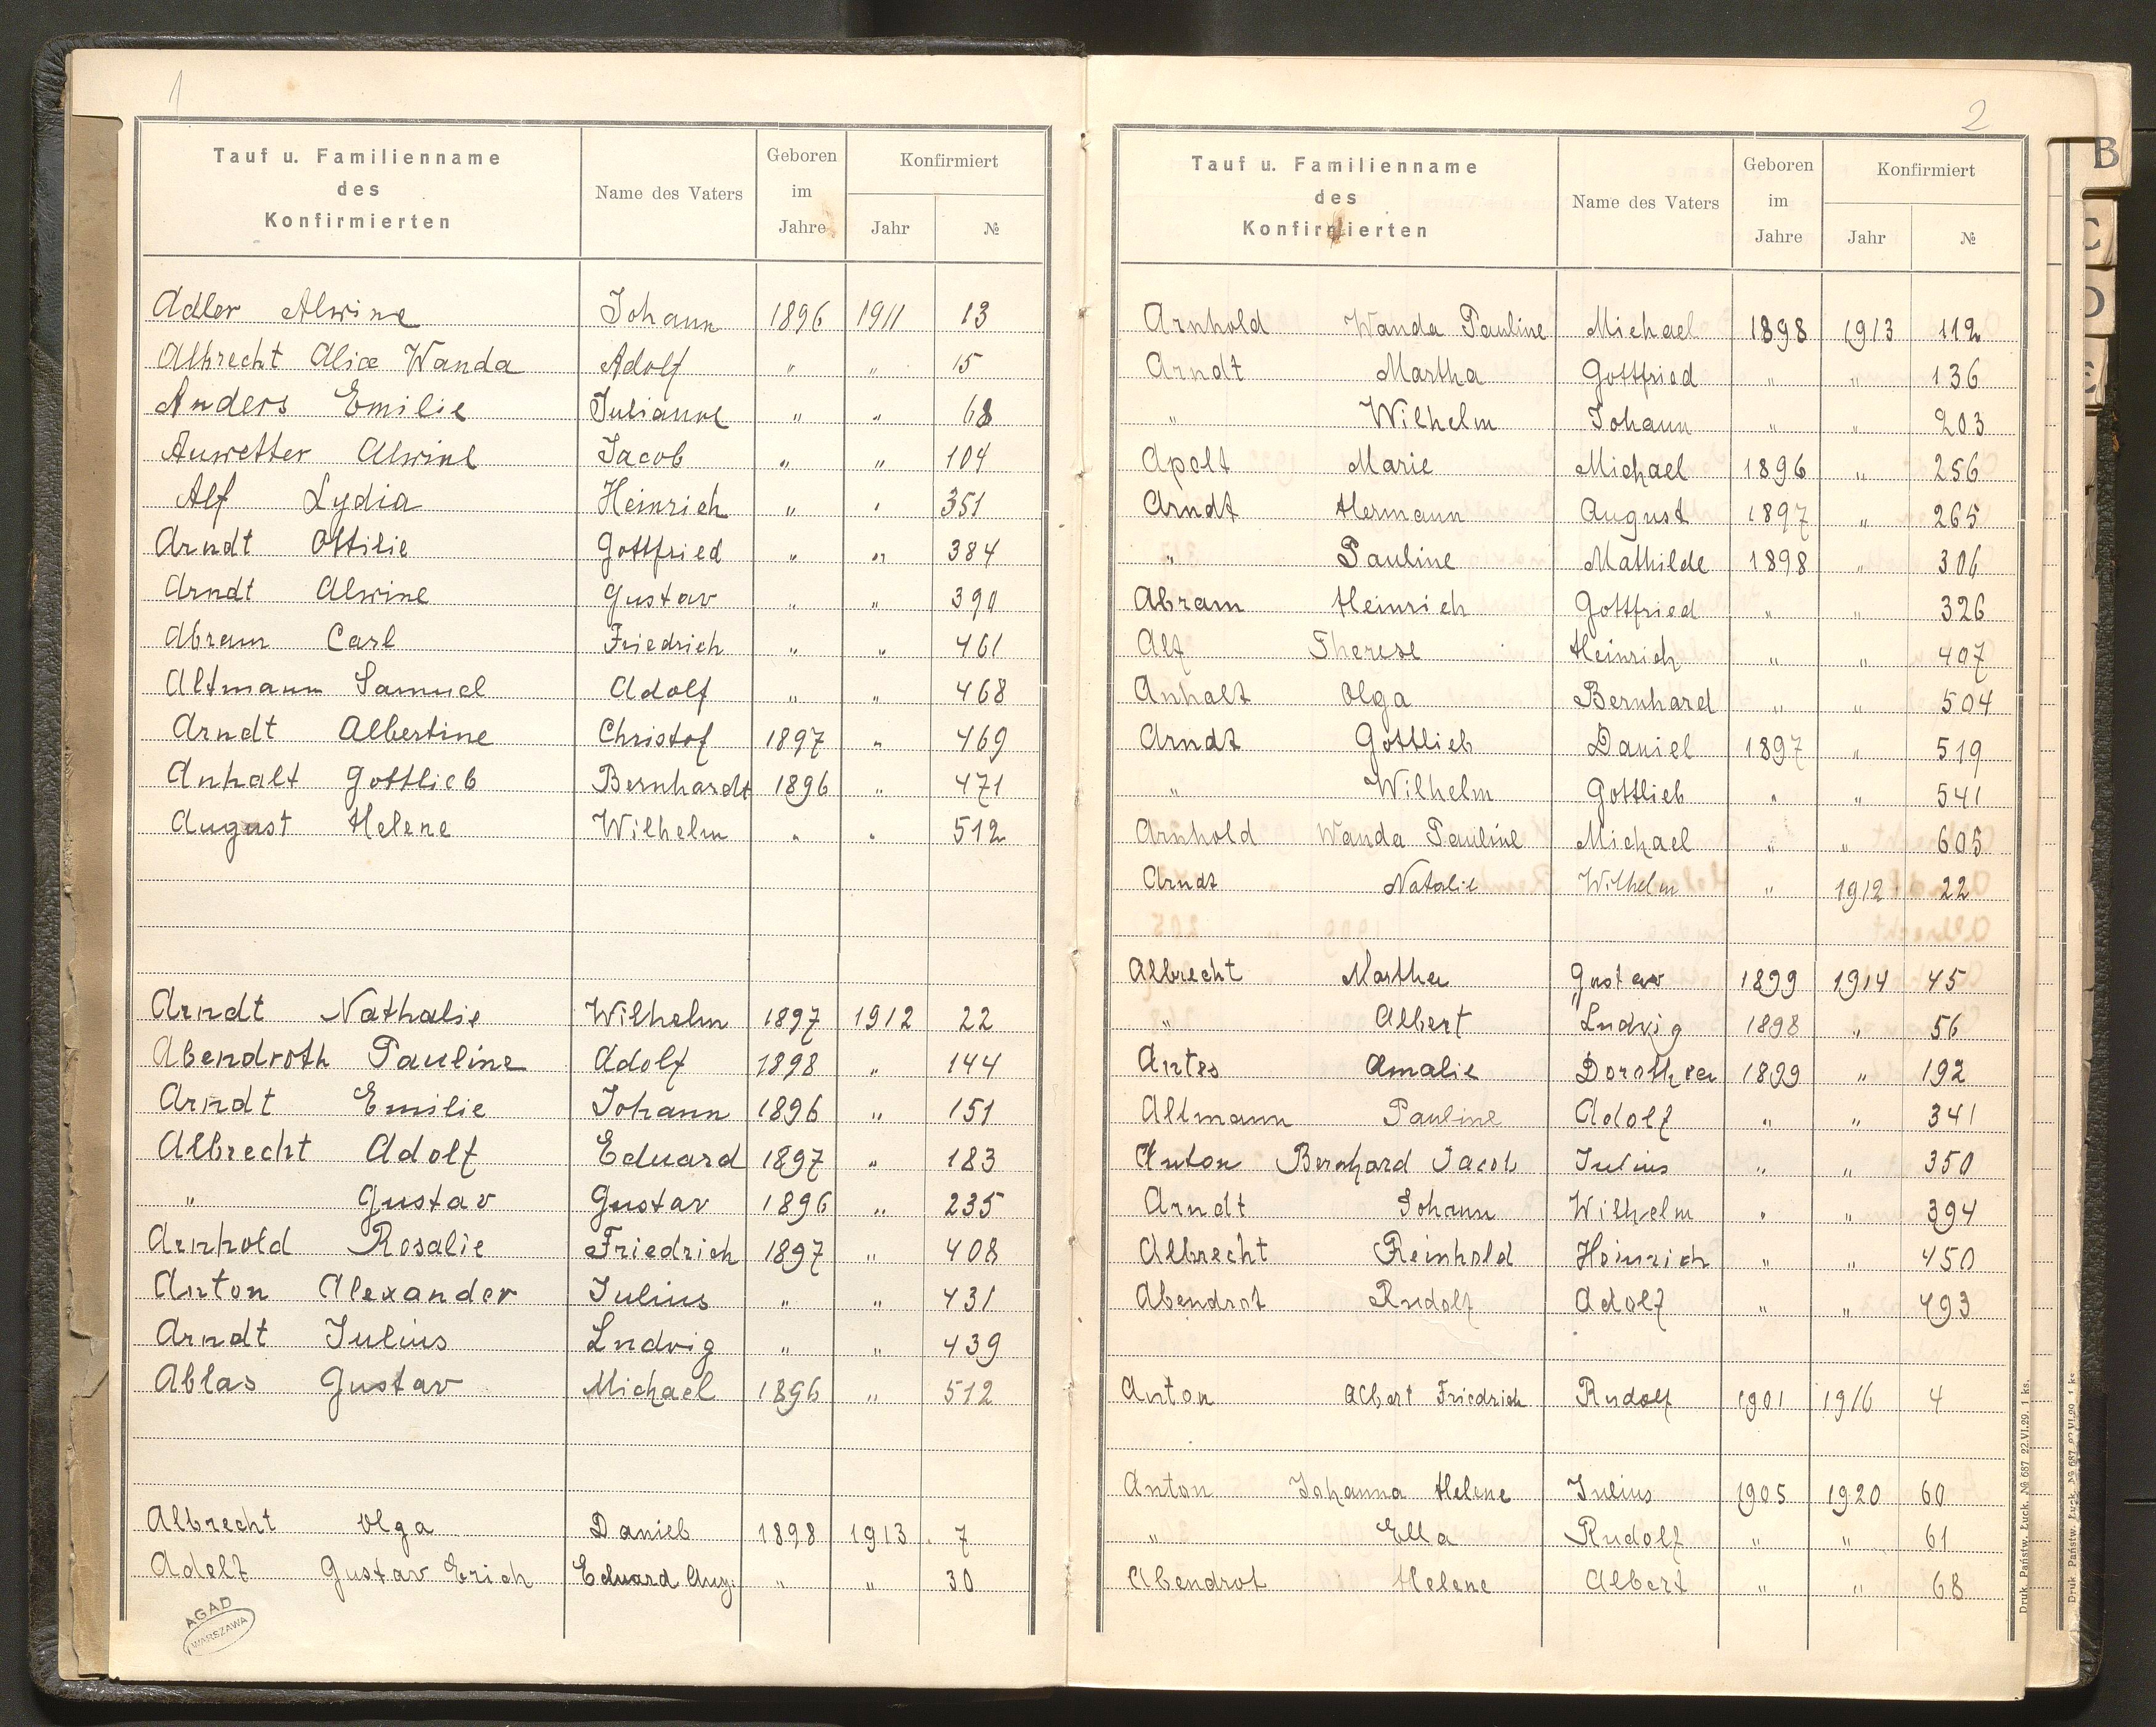 1
Tauf u. Familienname des Konfirmierten Name des Vaters Geboren im Jahre Konfirmiert Jahr №
Adler Alwine Johann 1896 1911 13
Albrecht Alice Wanda Adolf " " 15
Anders Emilie Julianne " " 68
Auwetter Alwine Jacob " " 104
Alf Lydia Heinrich " " 351
Arndt Ottilie Gottfried " " 384
Arndt Alwine Gustav " " 390
Abram Carl Friedrich " " 461
Altmann Samuel Adolf " " 468
Arndt Albertine Christof 1897 " 469
Anhalt Gottlieb Bernhardt 1896 " 471
August Helene Wilhelm " " 512
Arndt Nathalie Wilhelm 1897 1912 22
Abendroth Pauline Adolf 1898 " 144
Arndt Emilie Johann 1896 " 151
Albrecht Adolf Eduard 1897 " 183
" Gustav Gustav 1896 " 235
Arnhold Rosalie Friedrich 1897 " 408
Anton Alexander Julius " " 431
Arndt Julius Ludvig " " 439
Ablas Gustav Michael 1896 " 512
Albrecht Olga Daniel 1898 1913 7
Adelt Gustav Erich Eduard Aug. " " 30
AGAD
WARSZAWA
2
Tauf u. Familienname des Konfirmierten Name des Vaters Geboren im Jahre Konfirmiert Jahr №
Arnhold Wanda Pauline Michael 1898 1913 112
Arndt Martha Gottfried " " 136
" Wilhelm Johann " " 203
Apelt Marie Michael 1896 " 256
Arndt Hermann August 1897 " 265
" Pauline Mathilde 1898 " 306
Abram Heinrich Gottfried " " 326
Alf Therese Heinrich " " 407
Anhalt Olga Bernhard " " 504
Arndt Gottlieb Daniel 1897 " 519
" Wilhelm Gottlieb " " 541
Arnhold Wanda Pauline Michael " " 605
Arndt Natalie Wilhelm " 1912 22
Albrecht Martha Gustav 1899 1914 45
" Albert Ludvig 1898 " 56
Antes Amalie Dorothea 1899 " 192
Altmann Pauline Adolf " " 341
Anton Bernhard Jacob Julius " " 350
Arndt Johann Wilhelm " " 394
Albrecht Reinhold Heinrich " " 450
Abendrot Rudolf Adolf " " 493
Anton Albert Friedrich Rudolf 1901 1916 4
Anton Johanna Helene Julius 1905 1920 60
" Ella Rudolf " " 61
Abendrot Helene Albert " " 68
Druk. Państw. Łuck. № 687 22.VI.29. 1 ks.
Druk Państw. Łuck. № 687 22.VI.29. 1 ks
B
C
D
E